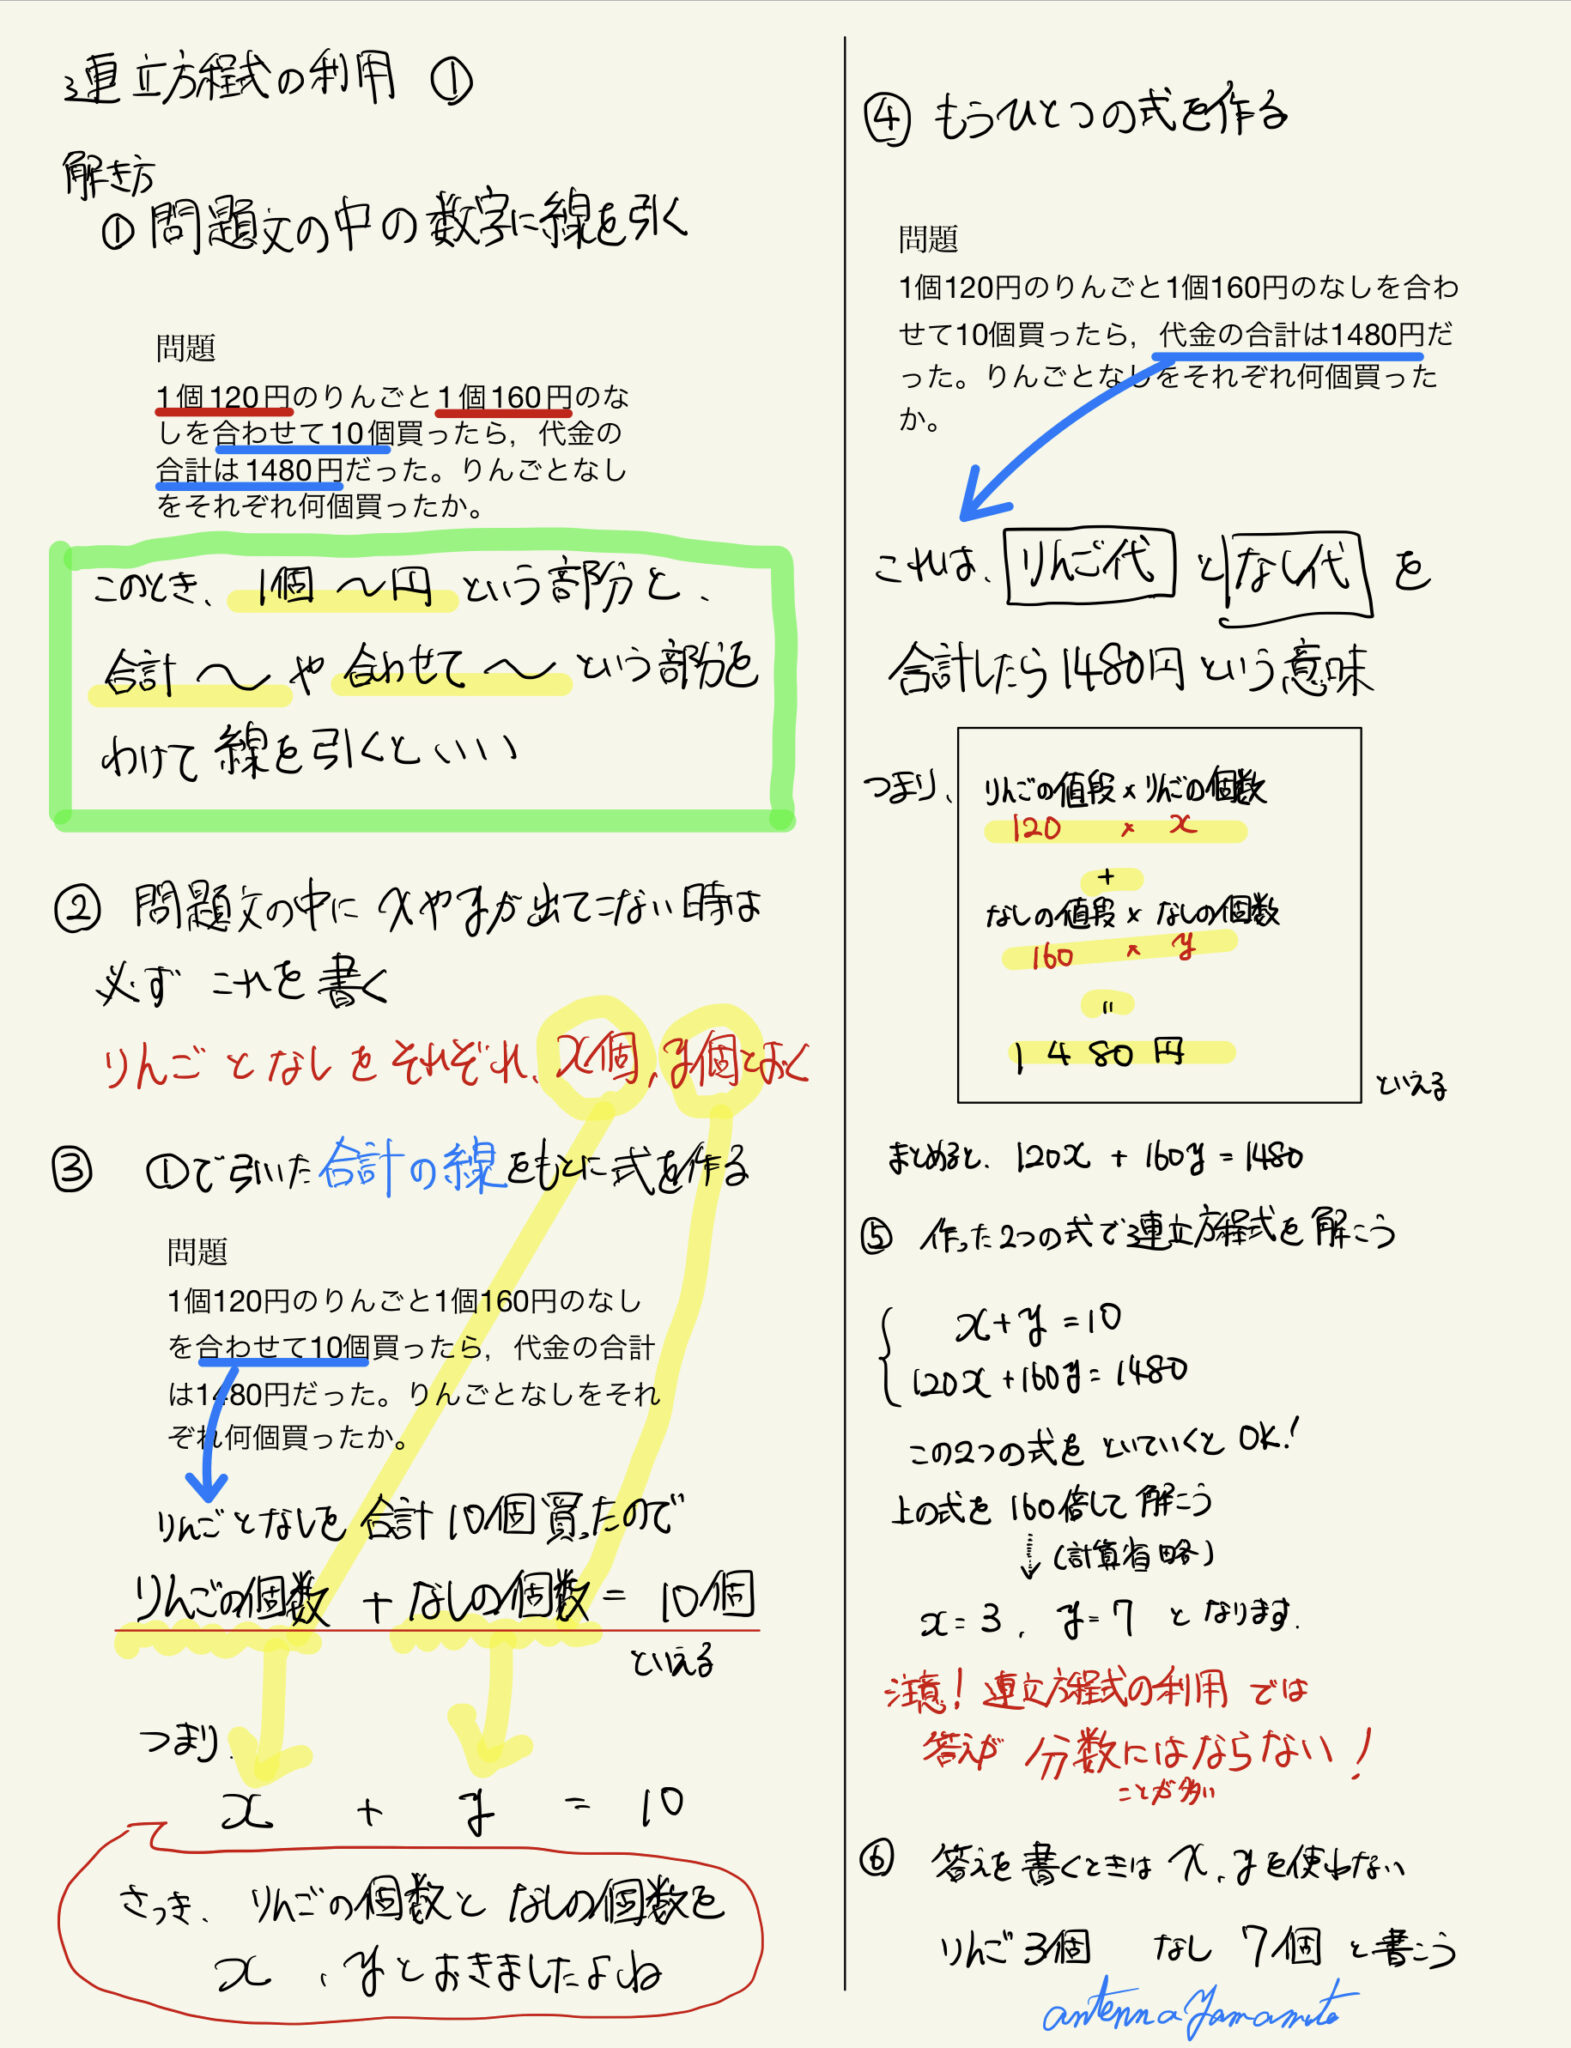 連立方程式の利用 ①
解き方
① 問題文の中の数字に線を引く
問題
1個120円のりんごと1個160円のな
しを合わせて10個買ったら，代金の
合計は1480円だった。りんごとなし
をそれぞれ何個買ったか。
このとき、1個〜円という部分と、
合計〜や合わせて〜という部分を
わけて線を引くといい
② 問題文の中にxやyが出てこない時は
必ずこれを書く
りんごとなしをそれぞれ、x個、y個とおく
③ ①で引いた合計の線をもとに式を作る
問題
1個120円のりんごと1個160円のなし
を合わせて10個買ったら，代金の合計
は1480円だった。りんごとなしをそれ
ぞれ何個買ったか。
りんごとなしを合計10個買ったので
りんごの個数 + なしの個数 = 10個
といえる
つまり、
x + y = 10
さっき、りんごの個数となしの個数を
x、yとおきましたよね
④ もうひとつの式を作る
問題
1個120円のりんごと1個160円のなしを合わ
せて10個買ったら，代金の合計は1480円だ
った。りんごとなしをそれぞれ何個買った
か。
これは、りんご代となし代を
合計したら1480円という意味
つまり、りんごの値段×りんごの個数
120 × x
+
なしの値段×なしの個数
160 × y
=
1480円
といえる
まとめると、120x + 160y = 1480
⑤ 作った2つの式で連立方程式を解こう
x+y=10
120x+160y=1480
この2つの式をといていくとOK!
上の式を160倍して解こう
(計算省略)
x=3、y=7 となります.
注意! 連立方程式の利用では
答えが分数にはならない!
ことが多い
⑥ 答えを書くときはx、yを使わない
りんご3個 なし7個と書こう
antenna Yamamoto